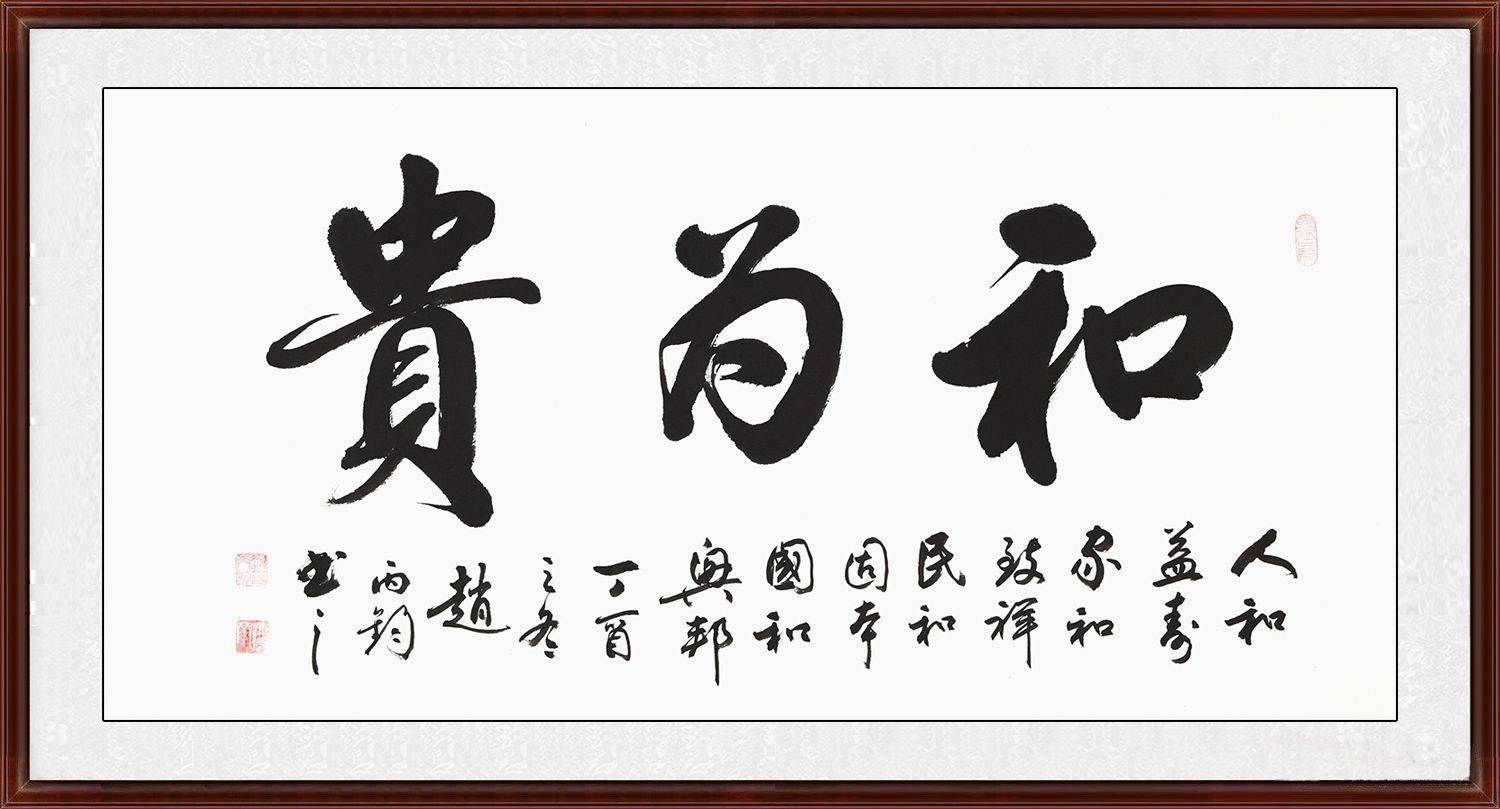 和為貴
人和
益寿
家和
致祥
民和
固本
國和
興邦
丁酉
之冬
趙
丙鈞
書之